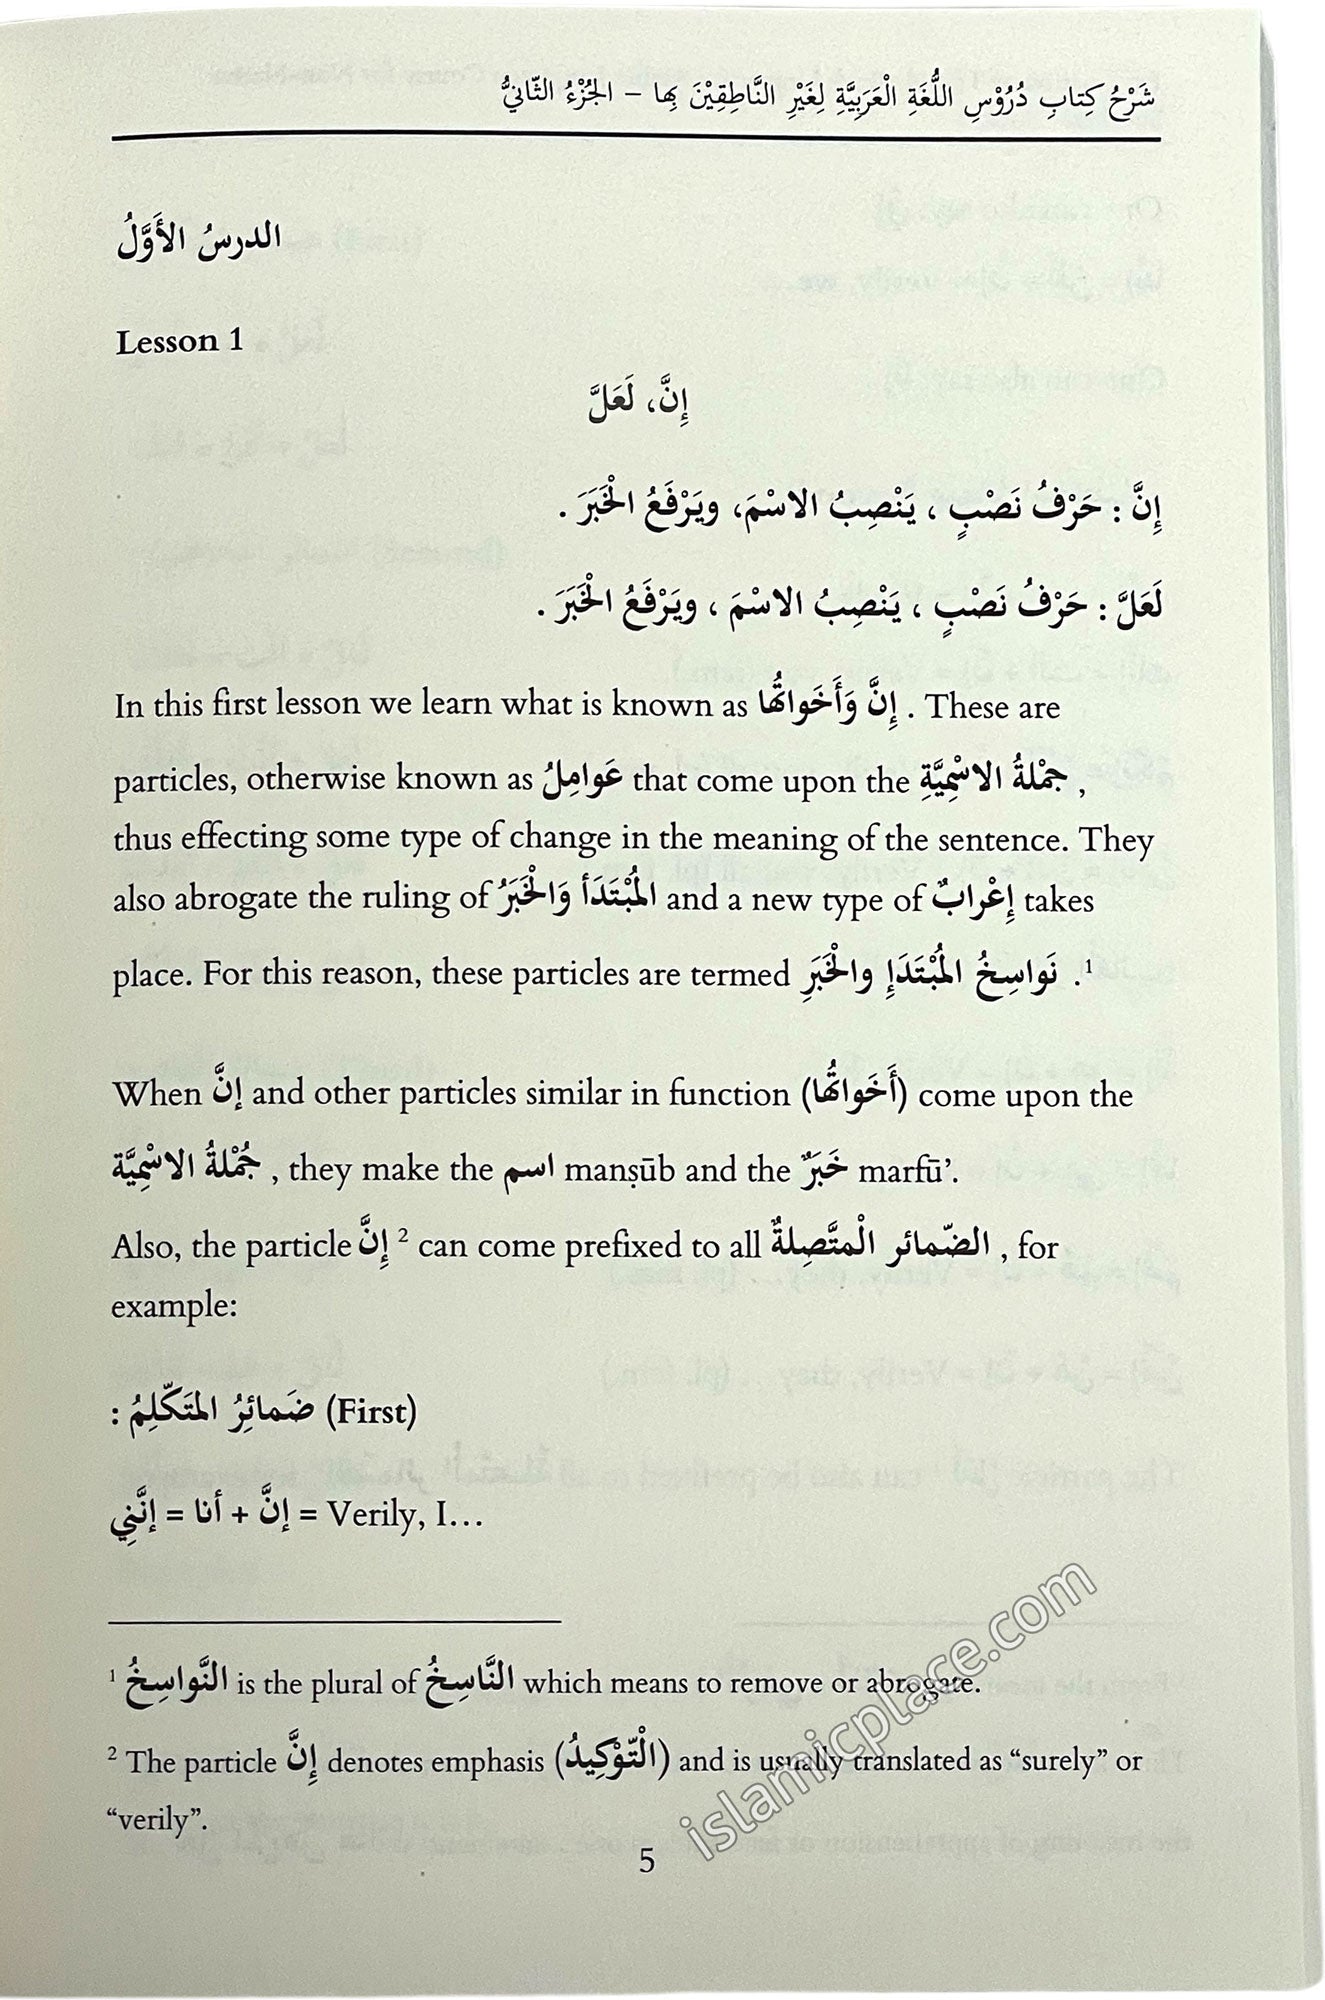 شَرْحُ كِتابِ دُرُوْسِ اللُّغَةِ الْعَرَبِيَّةِ لِغَيْرِ النَّاطِقِيْنَ بِها – الجُزْءُ الثّانيُّ
الدرسُ الأَوَّلُ
Lesson 1
إِنَّ، لَعَلَّ
إِنَّ : حَرْفُ نَصْبٍ ، يَنْصِبُ الاسْمَ، ويَرْفَعُ الْخَبَرَ .
لَعَلَّ : حَرْفُ نَصْبٍ ، يَنْصِبُ الاسْمَ ، ويَرْفَعُ الْخَبَرَ .
In this first lesson we learn what is known as إِنَّ وَأَخَواتُها . These are
particles, otherwise known as عَوامِلُ that come upon the جمْلةُ الاسْمِيَّةِ ,
thus effecting some type of change in the meaning of the sentence. They
also abrogate the ruling of المُبْتَدَأ وَالْخَبَرُ and a new type of إِعْرابٌ takes
place. For this reason, these particles are termed نَواسِخُ المُبْتَدَإِ والْخَبَرِ .¹
When إنَّ and other particles similar in function (أَخَواتُها) come upon the
جُمْلةُ الاسْمِيَّة , they make the اسم manṣūb and the خَبَرٌ marfū’.
Also, the particle إِنَّ ² can come prefixed to all الضّمائر الْمتَّصِلةٌ , for
example:
ضَمائِرُ المتَكّلِمُ (First) :
إنَّنِي = أنا + إنَّ = Verily, I…
¹ النَّواسِخُ is the plural of النَّاسِخُ which means to remove or abrogate.
² The particle إِنَّ denotes emphasis (الْتّوْكِيدُ) and is usually translated as “surely” or
“verily”.
5
islamicplace.com